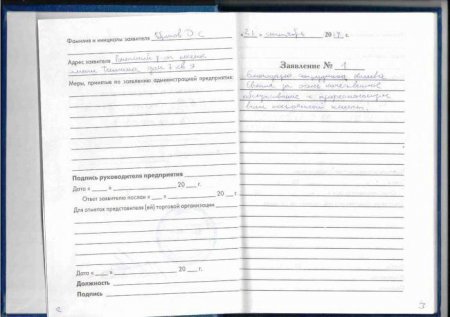 Фамилия и инициалы заявителя Д С
Адрес заявителя
дом 2 кв 9
Меры, принятые по заявлению администрацией предприятия:
Подпись руководителя предприятия
Дата « » 20 г.
Ответ заявителю послан « » 20 г.
Для отметок представителя (ей) торговой организации
Дата « » 20 г.
Должность
Подпись
2
« 21 » сентября 20 г.
Заявление № 1
Благодарю сотрудника
за качественное
обслуживание и
ваш постоянный клиент.
3